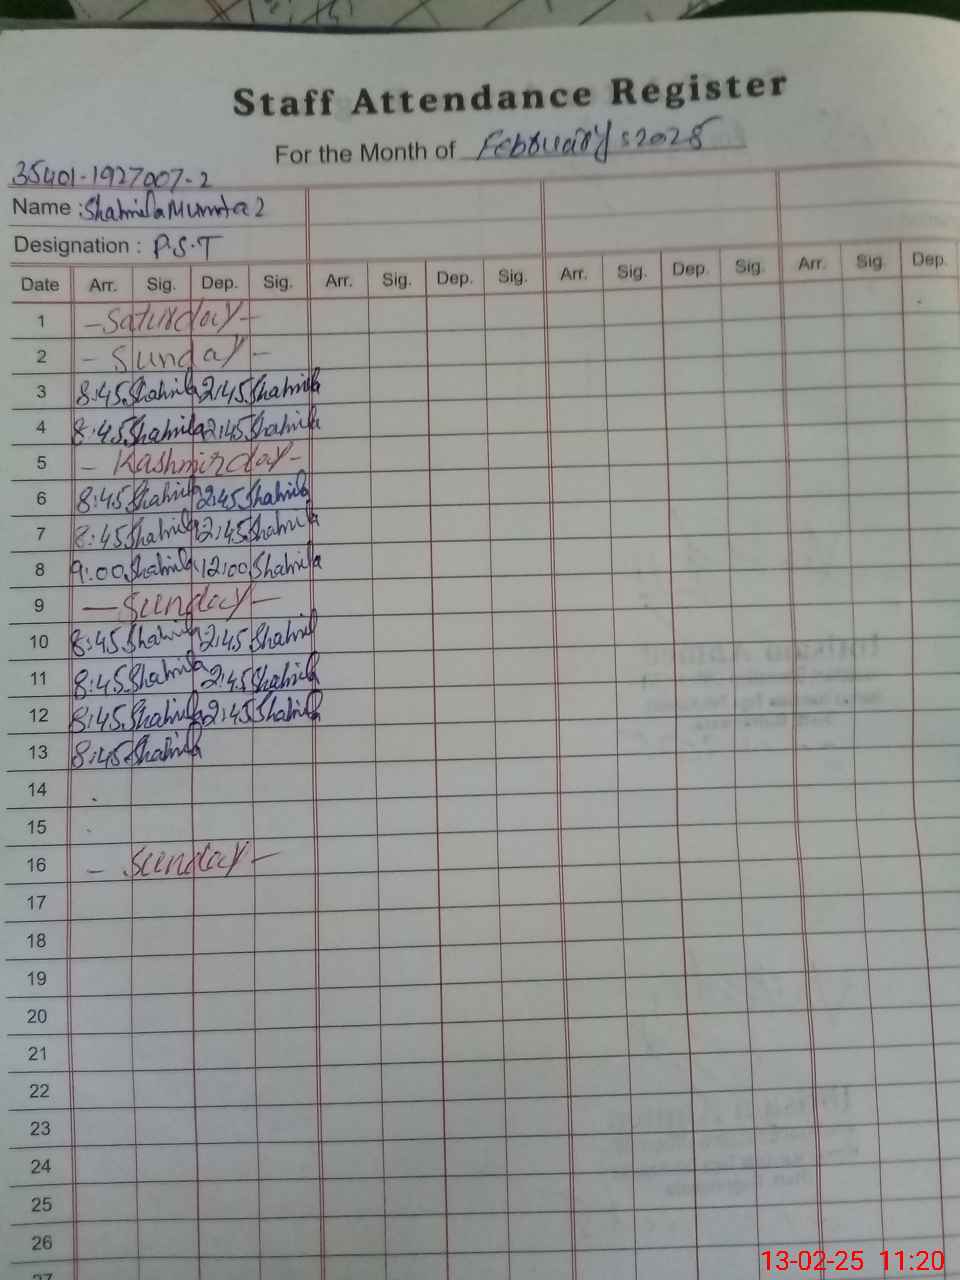 Staff Attendance Register
For the Month of February 2025
35401-1927007-2
Name : Shahnila Mumtaz
Designation : P.S.T
Date Arr. Sig. Dep. Sig. Arr. Sig. Dep. Sig. Arr. Sig. Dep. Sig. Arr. Sig. Dep.
1 - Saturday -
2 - Sunday -
3 8:45 Shahnila 2:45 Shahnila
4 8:45 Shahnila 2:45 Shahnila
5 - Kashmir day -
6 8:45 Shahnila 2:45 Shahnila
7 8:45 Shahnila 2:45 Shahnila
8 9:00 Shahnila 12:00 Shahnila
9 - Sunday -
10 8:45 Shahnila 2:45 Shahnila
11 8:45 Shahnila 2:45 Shahnila
12 8:45 Shahnila 2:45 Shahnila
13 8:45 Shahnila
14
15
16 - Sunday -
17
18
19
20
21
22
23
24
25
26
27
13-02-25 11:20